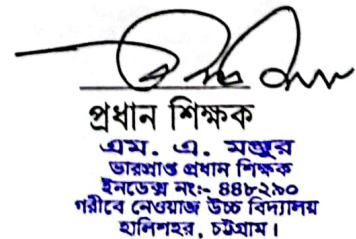 প্রধান শিক্ষক
এম. এ. মঞ্জুর
ভারপ্রাপ্ত প্রধান শিক্ষক
ইনডেক্স নং:- ৪৪৮২৯০
গরীবে নেওয়াজ উচ্চ বিদ্যালয়
হালিশহর, চট্টগ্রাম।